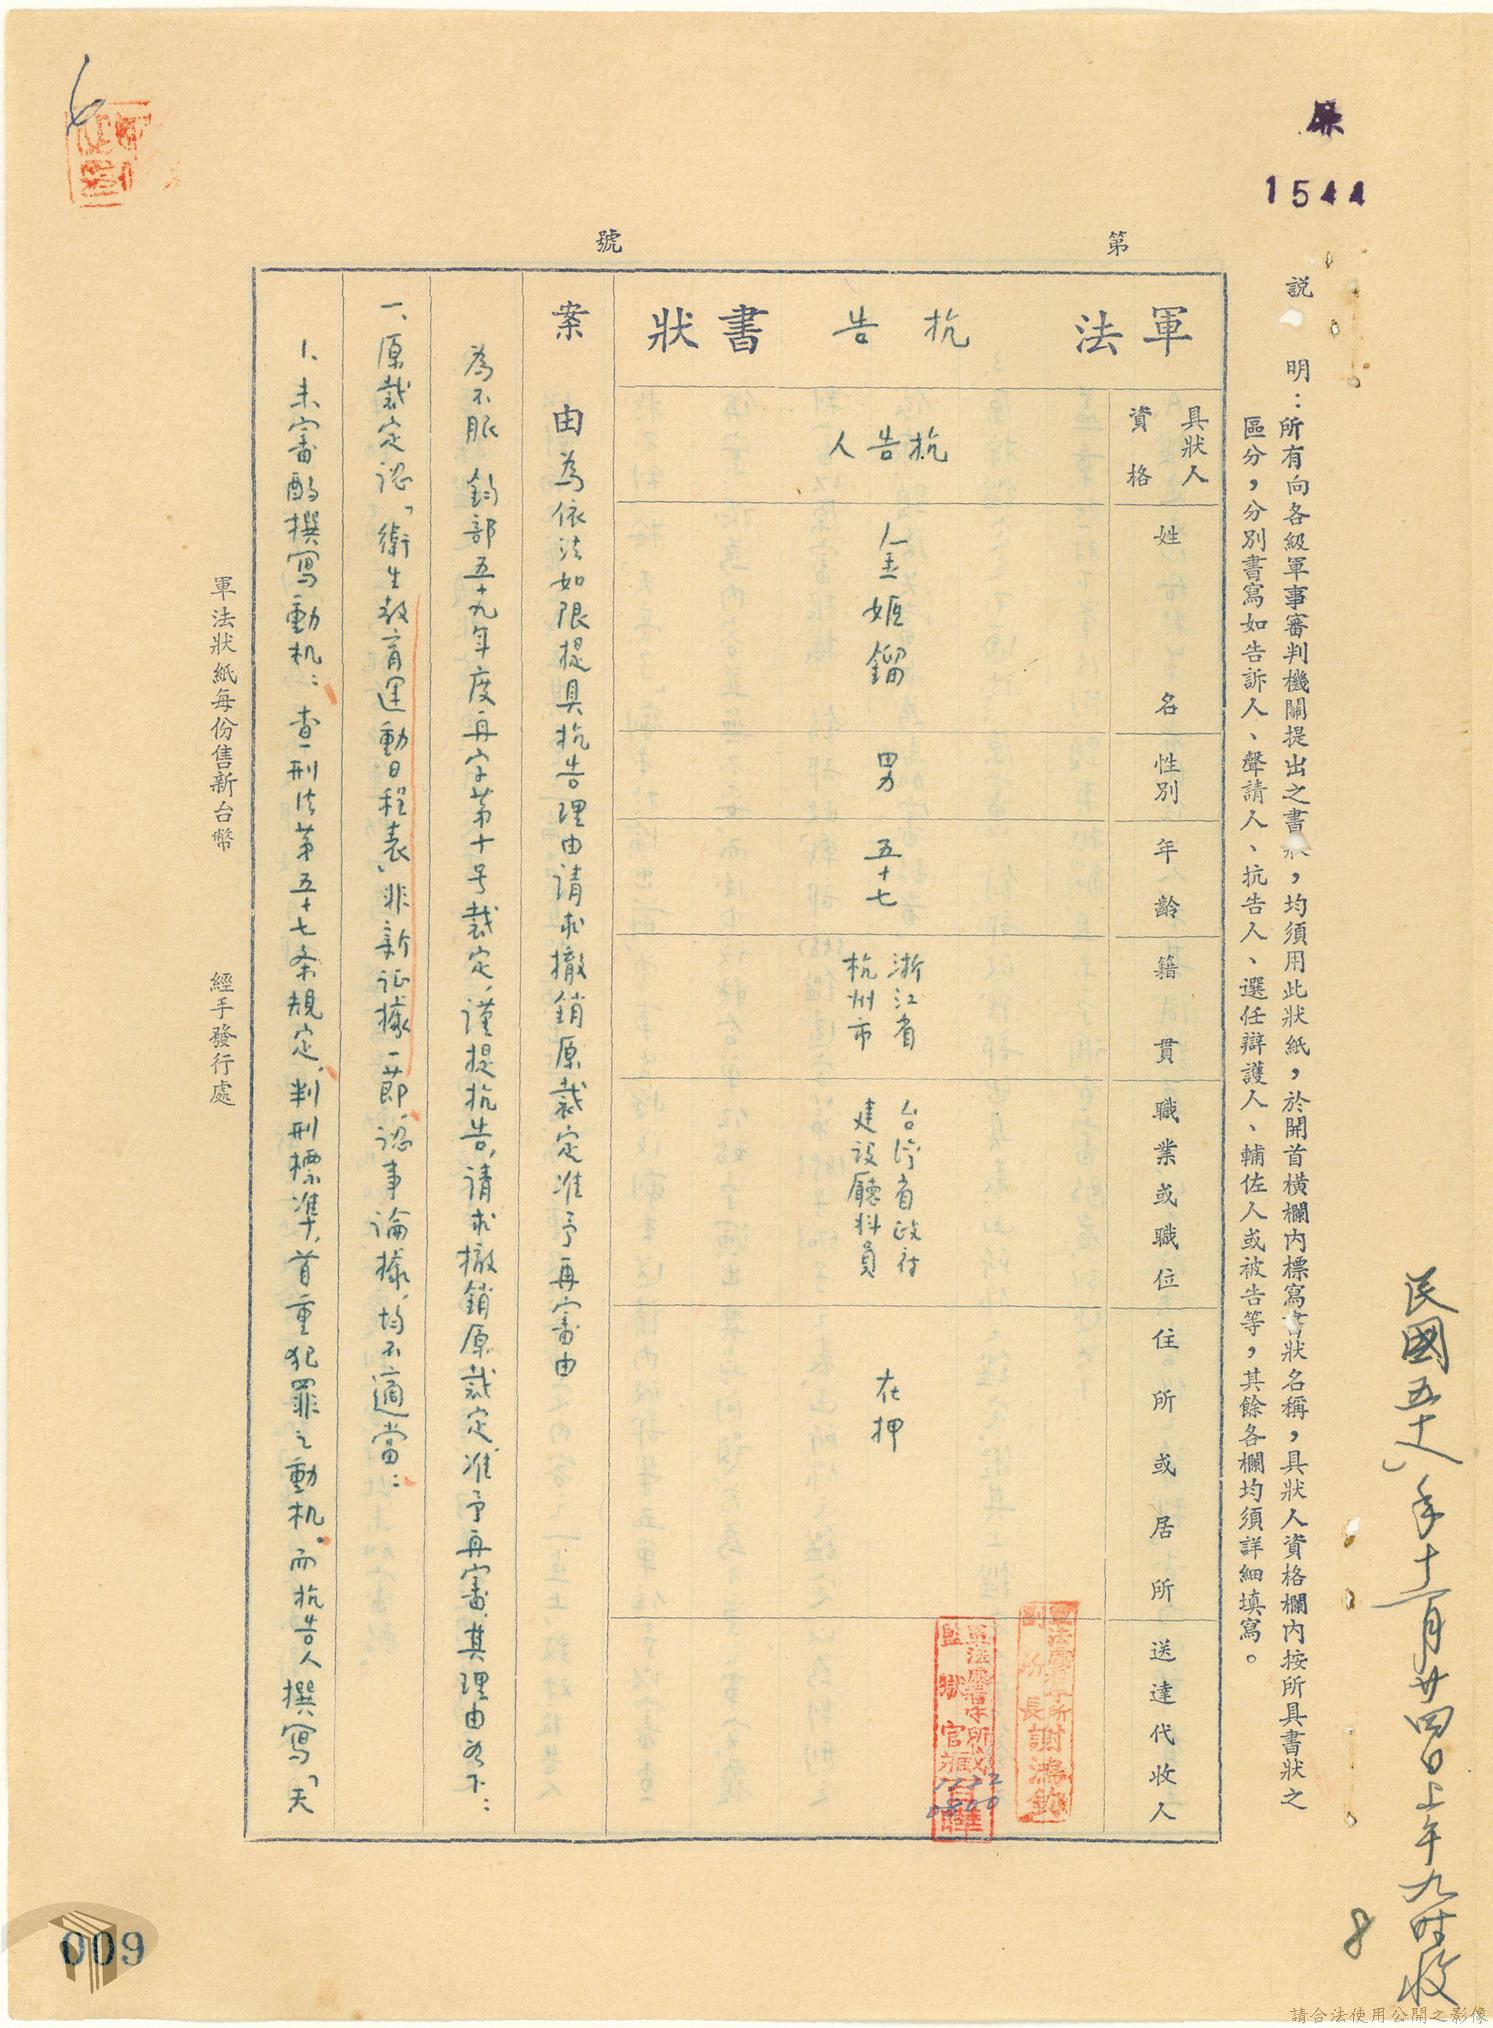 1544
說　明：所有向各級軍事審判機關提出之書狀，均須用此狀紙，於開首橫欄內標寫書狀名稱，具狀人資格欄內按所具書狀之
區分，分別書寫如告訴人、聲請人、抗告人、選任辯護人、輔佐人或被告等，其餘各欄均須詳細填寫。
民國五十八年十一月廿四日上午九时收
8
第　號
軍法　抗告　書狀
具狀人資格
抗告人
姓名
金姬鎦
性別
男
年齡
五十七
籍貫
浙江省
杭州市
職業或職位
台湾省政府
建設廳科員
住所或居所
在押
送達代收人
軍法處看守所
副所長謝鴻鈞
軍法處看守所
監獄官
1122
0800
案由　為依法如限提具抗告理由请求撤銷原裁定准予再審由
為不服　鈞部五十九年度再字第十号裁定，谨提抗告，请求撤銷原裁定准予再審，其理由为下：
一、原裁定認「衛生教育運動日程表」非新证據一節，認事論據，均不適當：
1、未審酌撰寫動机：查刑法第五十七条規定，判刑標準，首重犯罪之動机。而抗告人撰寫「天
軍法狀紙每份售新台幣　經手發行處
009
請合法使用公開之影像